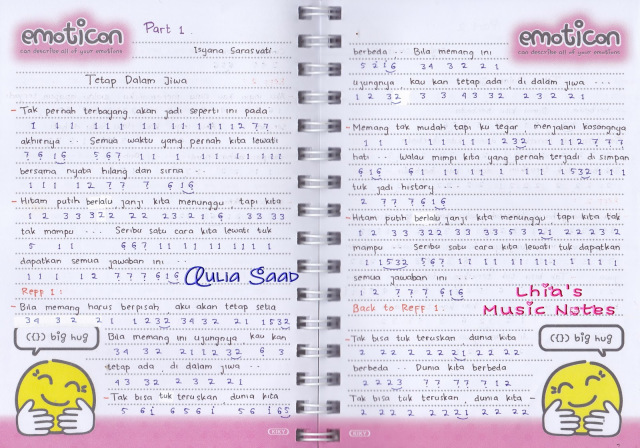 emoticon
can describe all of your emotions
Part 1.
Isyana Sarasvati
Tetap Dalam Jiwa
- Tak pernah terbayang akan jadi seperti ini pada
1 1 1 1 1 1 1 1 1 1 1 1 1 2 7 7
akhirnya .. Semua waktu yang pernah kita lewati
7 6 1 6 5 6 7 1 1 1 1 1 1 1 1 1 1
bersama nyata hilang dan sirna ...
1 1 1 1 2 7 7 7 6 1 6
- Hitam putih berlalu janji kita menunggu, tapi kita
1 2 3 3 3 2 2 2 2 2 3 2 1 6 3 3 3 3
tak mampu ... Seribu satu cara kita lewati tuk
5 1 1 6 6 7 1 1 1 1 1 1 1 1
dapatkan semua jawaban ini ...
1 1 1 1 2 7 7 7 6 1 6
Qulia Saad
Reff 1 :
- Bila memang harus berpisah aku akan tetap setia
3 4 3 2 2 1 1 2 3 2 3 4 3 2 2 1 1 5 3 2
Bila memang ini ujungnya kau kan
3 4 3 2 2 1 1 2 3 2 6 3
tetap ada, di dalam jiwa ...
4 3 3 2 2 3 2 2 1
- Tak bisa tuk teruskan, dunia kita
5 6 i 6 5 6 i 5 6 i 6 5
({}) big hug
KIKY
emoticon
can describe all of your emotions
berbeda .. Bila memang ini
5 2 i 6 3 4 3 2 2 1
ujungnya kau kan tetap ada, di dalam jiwa ...
1 2 3 2 3 3 4 3 3 2 2 3 2 2 1
- Memang tak mudah tapi ku tegar, menjalani kosongnya
1 1 1 1 1 1 1 1 2 3 2 1 1 1 2 7 7 7
hati .. Walau mimpi kita yang pernah terjadi di simpan
6 1 6 6 1 1 1 1 1 1 1 1 5 3 2 1 1 1
tuk jadi history ...
2 7 7 7 6 1 6
- Hitam putih berlalu janji kita menunggu tapi kita tak
1 2 3 3 3 2 2 3 3 3 3 5 3 2 1 2 2 3 3 2
mampu .. Seribu satu cara kita lewati tuk dapatkan
1 1 5 3 2 5 6 7 1 1 1 1 1 1 1 1 1 1 1
semua jawaban ini ...
1 2 7 7 7 6 1 6
Back to Reff 1.
Lhia's
Music Notes
- Tak bisa tuk teruskan dunia kita
2 2 2 2 2 2 2 1 2 2 2
berbeda .. Dunia kita berbeda
2 2 2 3 7 7 7 7 7 1 2
Tak bisa tuk teruskan, dunia kita -
2 2 2 2 2 2 2 1 2 2 2 2
({}) big hug
KIKY